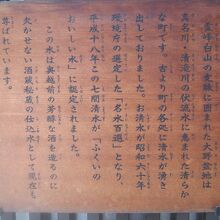 霊峰白山の支脈に囲まれた大野盆地は
真名川、清滝川の伏流水に恵まれた清らか
な町です。古より町の各処に清水が湧き
出しておりました。お清水が昭和六十年
環境庁の選定した「名水百選」となり、
平成十八年この七間清水が「ふくいの
おいしい水」に認定されました。
この水は奥越前の芳醇な酒を造るのに
欠かせない酒蔵秘蔵の仕込水として現在も
尊ばれています。